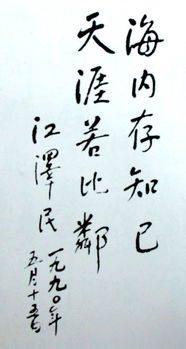 海内存知己
天涯若比鄰
江澤民
一九九〇年
五月十五日